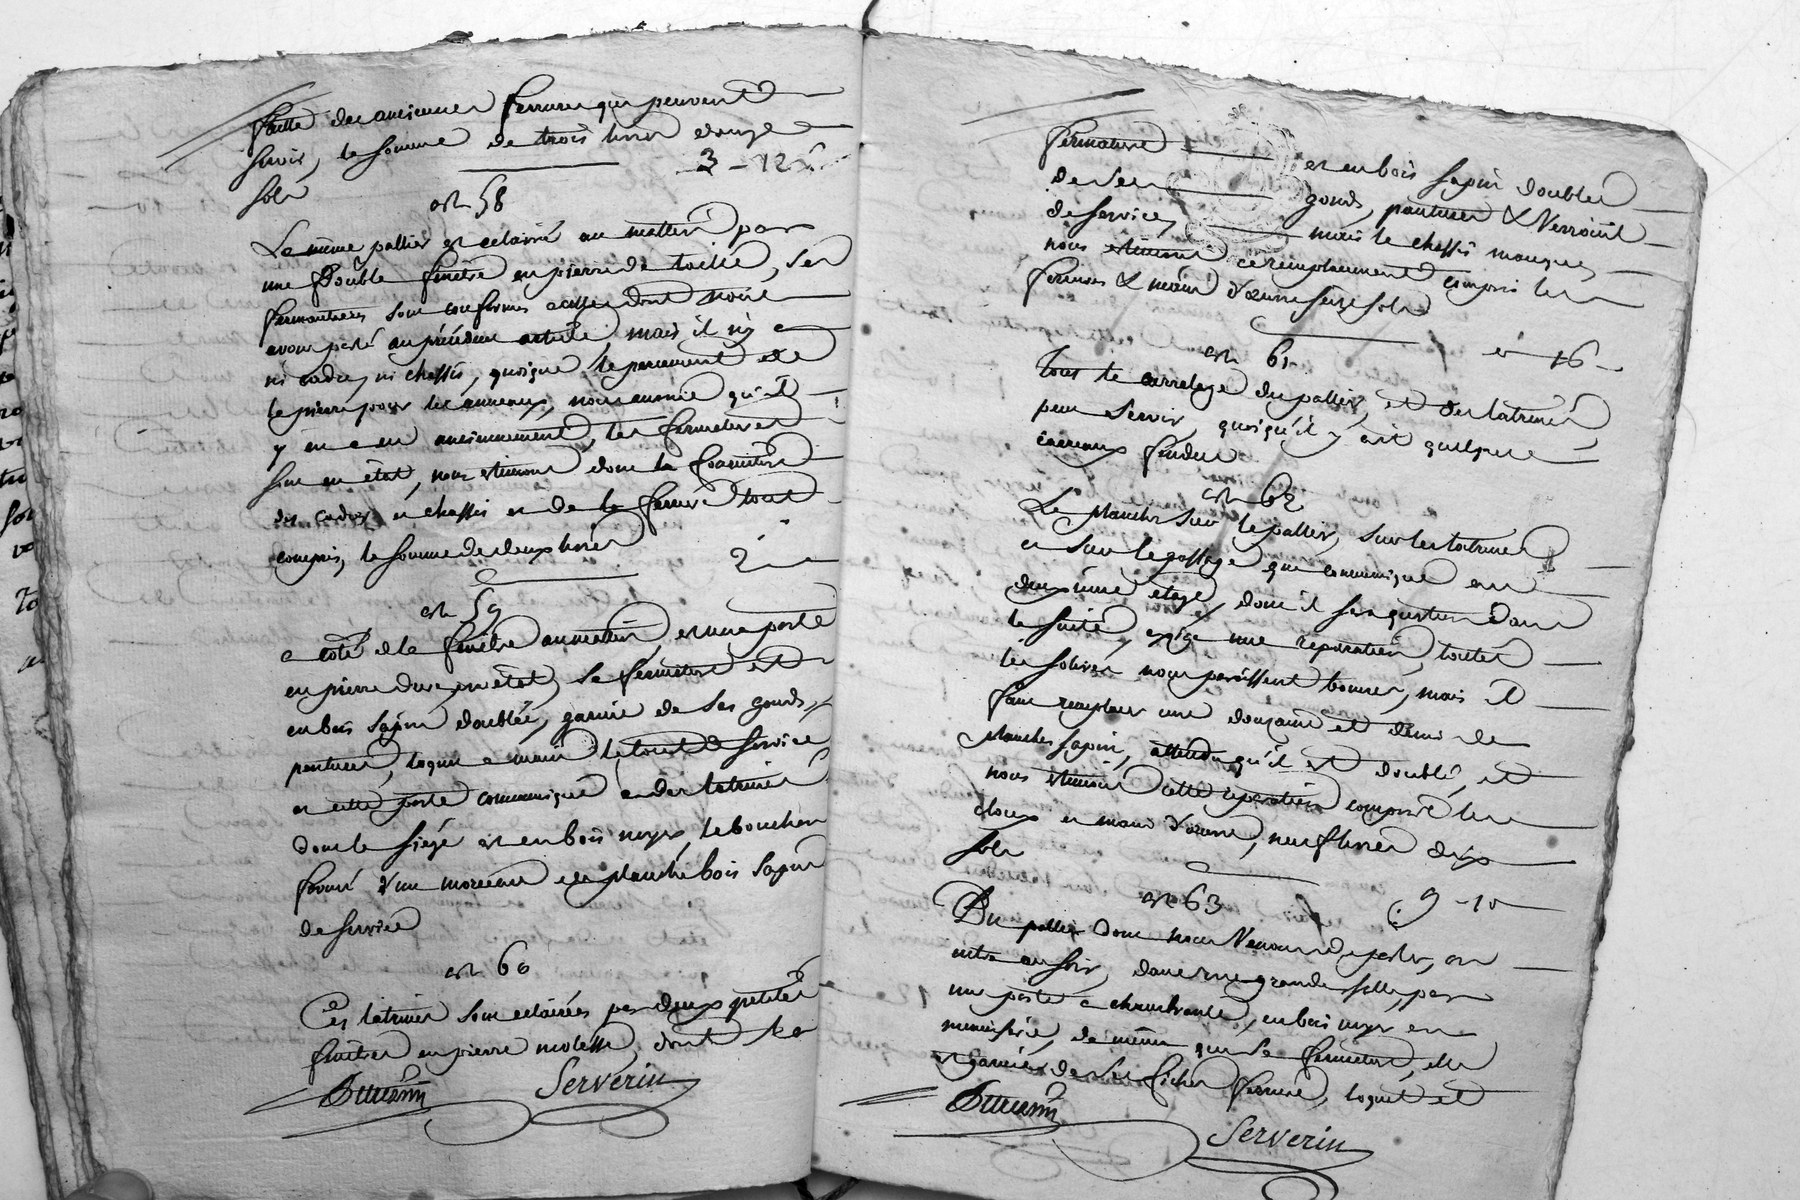 faitte des anciennes ferrures qui peuvent
servir, la somme de trois livres douze
sols 3 - 12 s
art. 58
Le même pallier est eclairé au matin par
une double fenêtre en pierre de taille, ses
fermentures sont conformes a celles dont nous
avons parlé au précédent article, mais il n'y a
ni cadre, ni chassis, quoique le parement de
la pierre pour les anneaux, nous annonce qu'il
y en a eu anciennement, les fermetures
sont en état, nous estimons donc la fourniture
des cadres et chassis et de la ferrure tout
compris, la somme de deux livres 2
art. 59
a coté de la fenêtre au matin, est une porte
en pierre dure, en état, sa fermeture est
en bois sapin doublée, garnie de ses gonds,
pentures, loquet a main le tout de service
et cette porte communique a des latrines
dont le siége est en bois noyer, le bouchon
formé d'un morceau de planche bois sapin
de service
art. 60
Ces latrines sont eclairées par deux petites
fenêtres en pierre molasse, dont la
Serverin
fermeture est en bois sapin doublée
de ses gonds, pentures & Verrouil
de service, mais le chassis manque,
nous estimons ce remplacement compris les
ferrures & main d'œuvre seize sols
16
art. 61
Tout le carrelage du pallier, et des latrines
peut servir, quoiqu'il y ait quelques
carreaux fendus
art. 62
Le plancher sur le pallier, sur les latrines
et sur le passage qui communique au
deuxième étage, dont il sera question dans
la suite, exige une reparation, toutes
les solives nous paroissent bonnes, mais il
faut remplacer une douzaine et demi de
planches sapin, attendu qu'il est doublé, et
nous estimons cette reparation compris les
cloux et main d'œuvre, neuf livres dix
sols
9 - 10
art. 63
Du pallier dont nous Venons de parler, on
entre au soir, dans une grande salle, par
une porte a chambrante, en bois noyer en
menuiserie, de même que sa fermeture, elle
est garnie de ses fiches ferrure, loquet et
Serverin